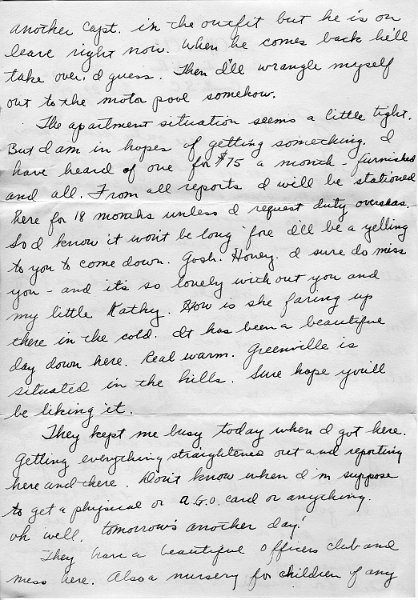 another Capt. in the outfit but he is on
leave right now. When he comes back he'll
take over. I guess. Then I'll wrangle myself
out to the motor pool somehow.
The apartment situation seems a little tight.
But I am in hopes of getting something. I
have heard of one for $75 a month - furnished
and all. From all reports I will be stationed
here for 18 months unless I request duty overseas.
So I know it won't be long 'fore I'll be a yelling
to you to come down. Gosh. Honey. I sure do miss
you - and it's so lonely without you and
my little Kathy. How is she faring up
there in the cold. It has been a beautiful
day down here. Real warm. Greenville is
situated in the hills. Sure hope you'll
be liking it.
They kept me busy today when I got here.
Getting everything straightened out and reporting
here and there. Don't know when I'm suppose
to get a physical or A.G.O. card or anything.
oh well, tomorrow's another day!
They have a beautiful officers club and
mess here. Also a nursery for children of any